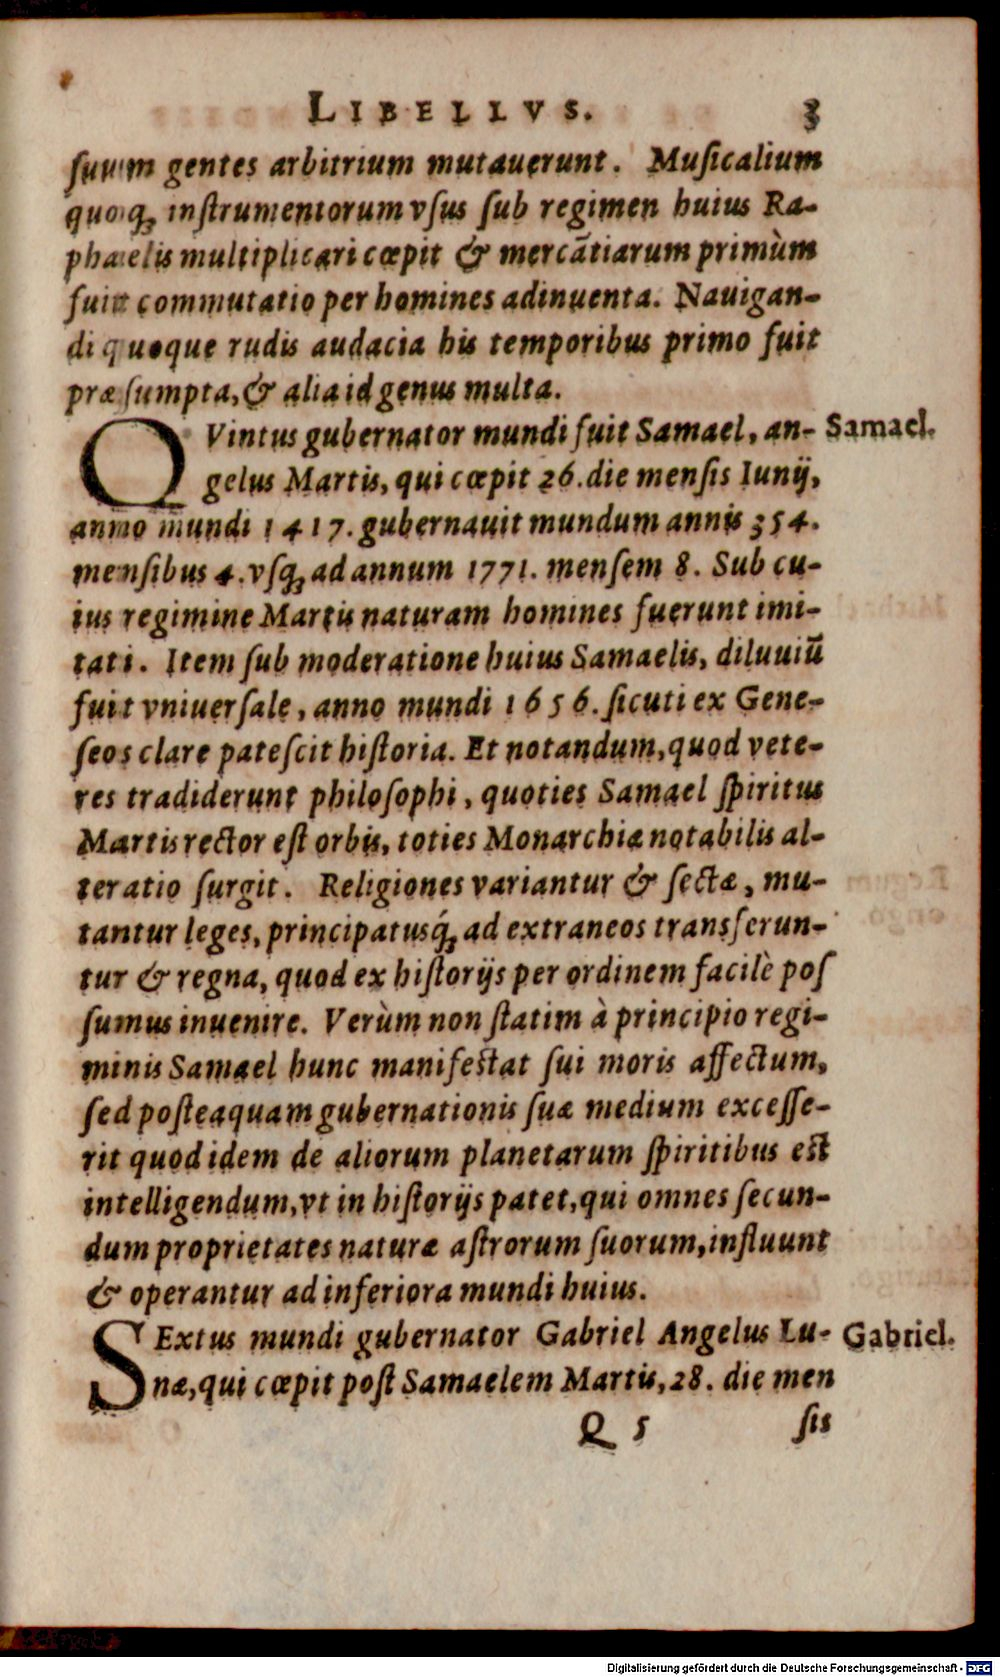 LIBELLVS. 3
suum gentes arbitrium mutauerunt. Musicalium
quoq; instrumentorum vsus sub regimen huius Ra-
phaelis multiplicari cœpit & mercãtiarum primùm
fuit commutatio per homines adinuenta. Nauigan-
di quoque rudis audacia his temporibus primo fuit
præsumpta, & alia id genus multa.
QVintus gubernator mundi fuit Samael, an- Samael.
gelus Martis, qui cœpit 26. die mensis Iunij,
anno mundi 1417. gubernauit mundum annis 354.
mensibus 4. vsq; ad annum 1771. mensem 8. Sub cu-
ius regimine Martis naturam homines fuerunt imi-
tati. Item sub moderatione huius Samaelis, diluuiũ
fuit vniuersale, anno mundi 1656. sicuti ex Gene-
seos clare patescit historia. Et notandum, quod vete-
res tradiderunt philosophi, quoties Samael spiritus
Martis rector est orbis, toties Monarchiæ notabilis al-
teratio surgit. Religiones variantur & sectæ, mu-
tantur leges, principatusq́; ad extraneos transferun-
tur & regna, quod ex historijs per ordinem facilè pos
sumus inuenire. Verùm non statim à principio regi-
minis Samael hunc manifestat sui moris affectum,
sed posteaquam gubernationis suæ medium excesse-
rit quod idem de aliorum planetarum spiritibus est
intelligendum, vt in historijs patet, qui omnes secun-
dum proprietates naturæ astrorum suorum, influunt
& operantur ad inferiora mundi huius.
SExtus mundi gubernator Gabriel Angelus Lu- Gabriel.
næ, qui cœpit post Samaelem Martis, 28. die men
Q 5 sis
Digitalisierung gefördert durch die Deutsche Forschungsgemeinschaft - DFG